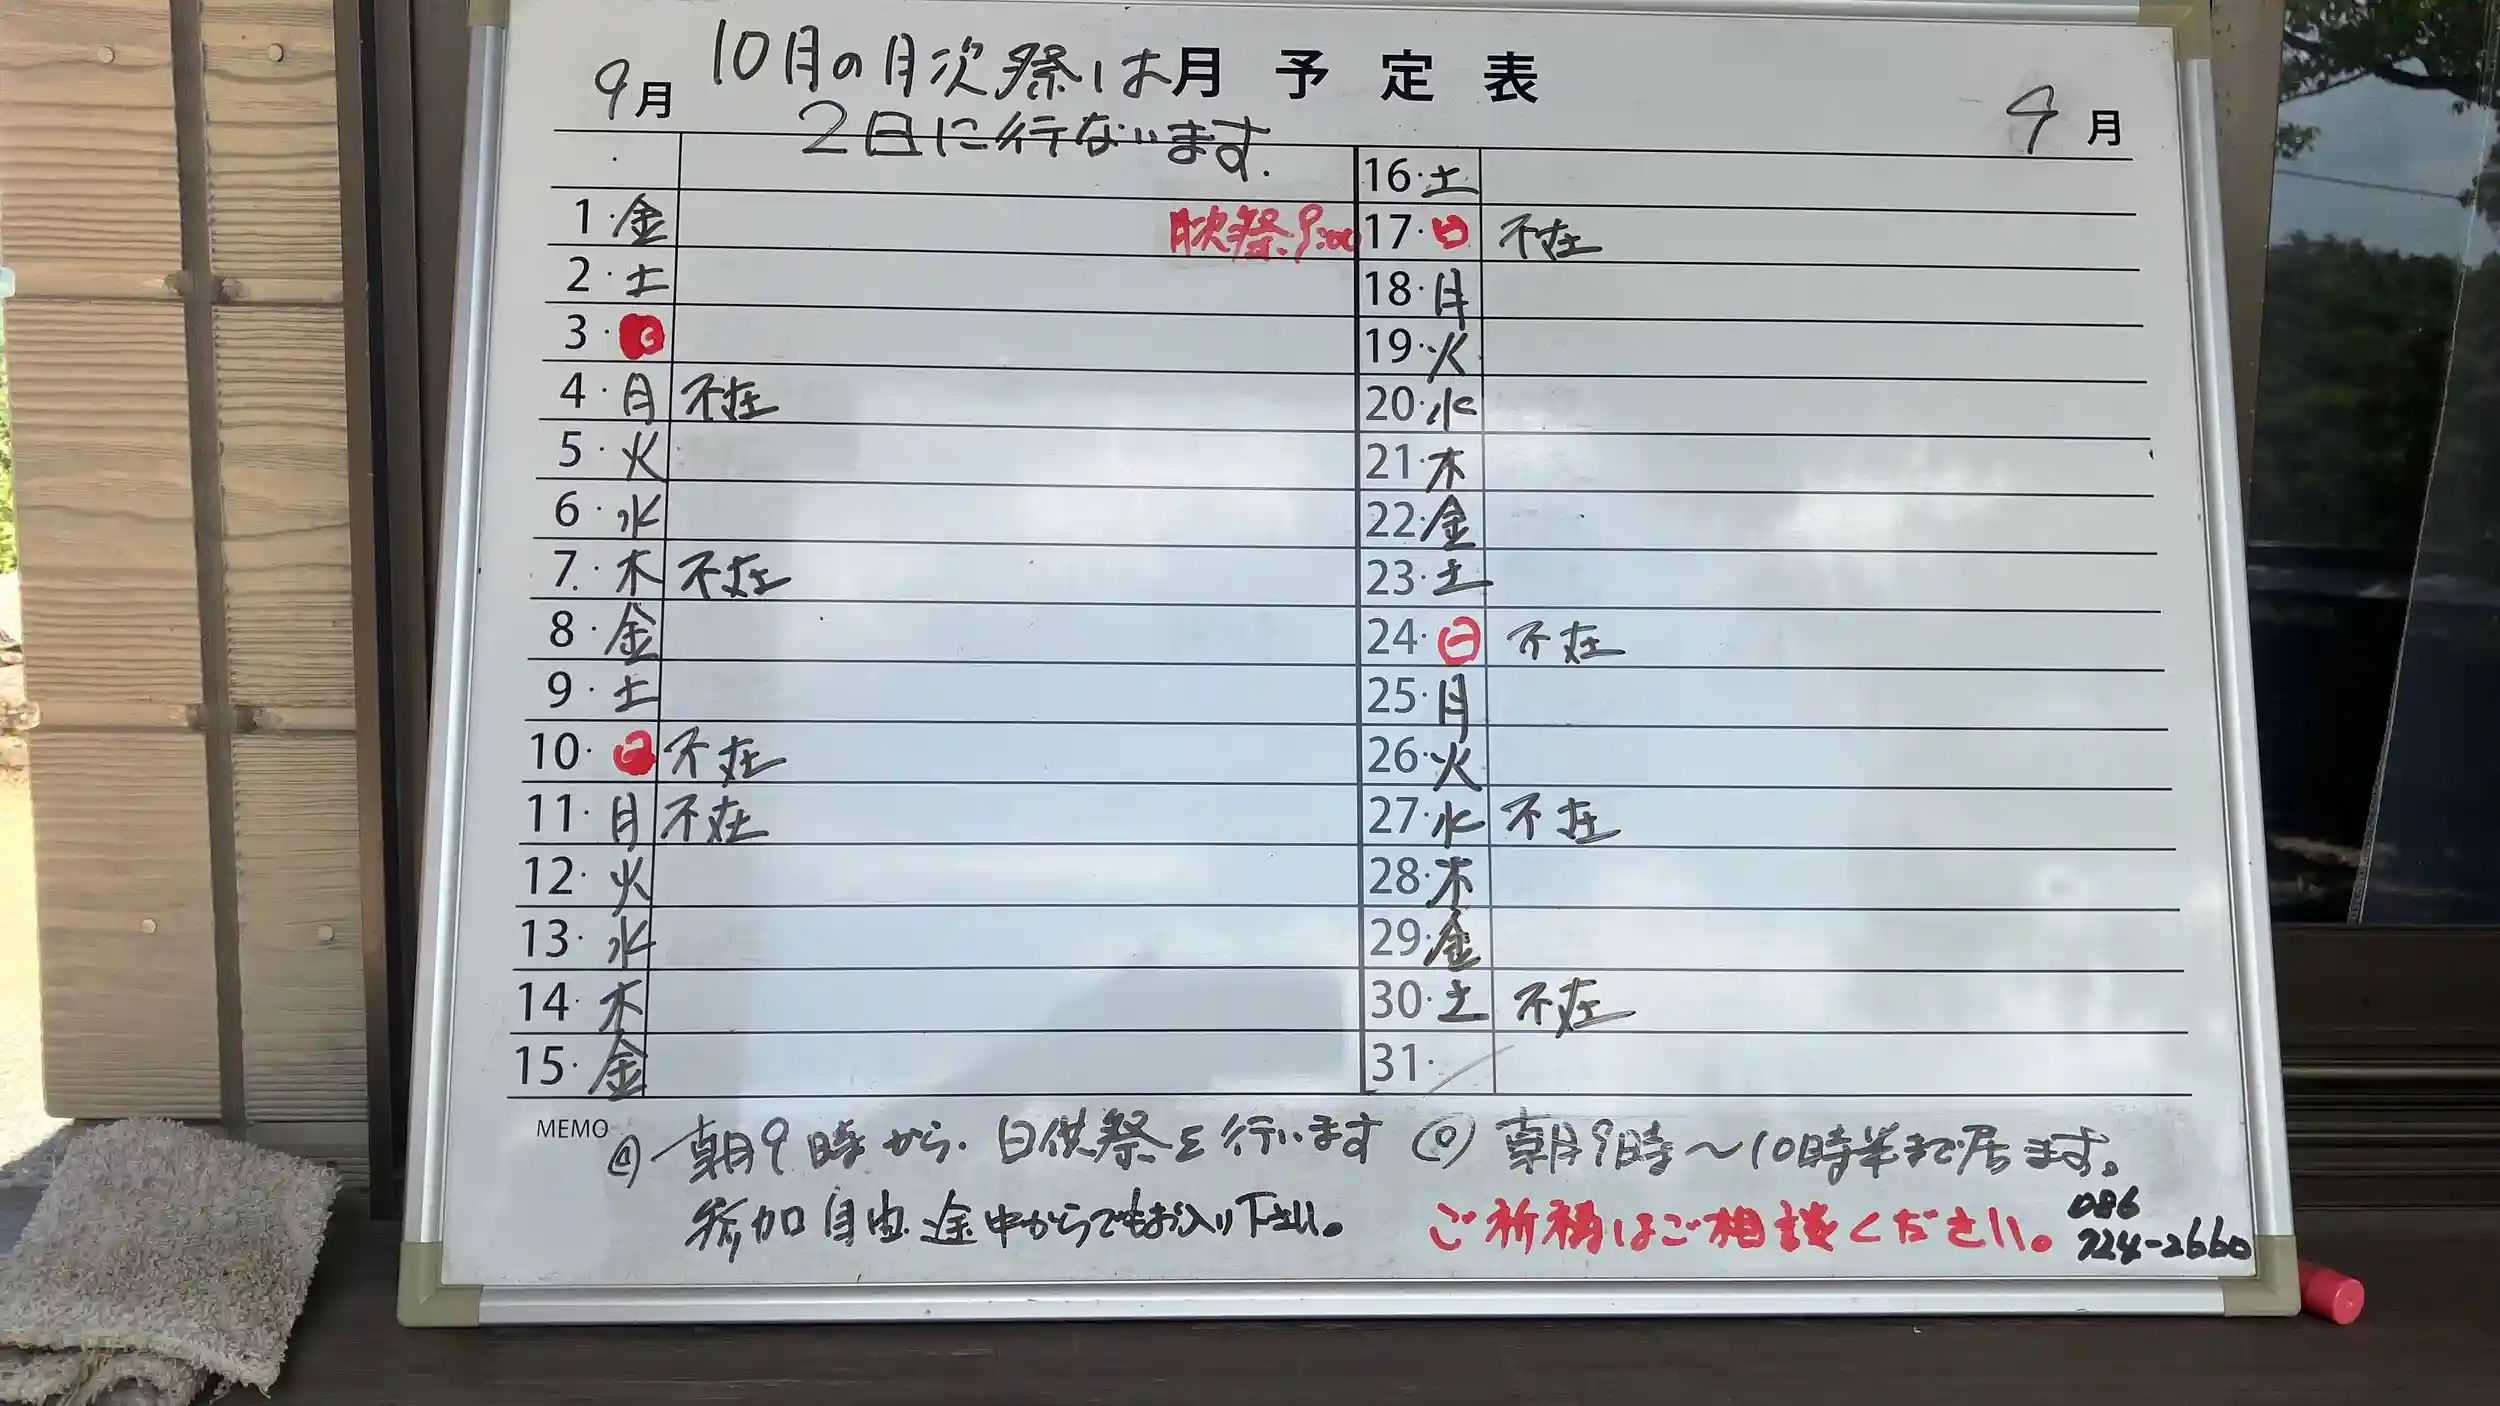 10月の月次祭は
2日に行ないます.
月予定表
9月
9月
1・金 月次祭.9:00
2・土
3・日
4・月 不在
5・火
6・水
7・木 不在
8・金
9・土
10・日 不在
11・月 不在
12・火
13・水
14・木
15・金
16・土
17・日 不在
18・月
19・火
20・水
21・木
22・金
23・土
24・日 不在
25・月
26・火
27・水 不在
28・木
29・金
30・土 不在
31・
MEMO
朝9時から.日供祭を行います
参加自由.途中からでもお入り下さい。
◎朝9時〜10時半まで居ます。
ご祈祷はご相談ください。
086
724-2660